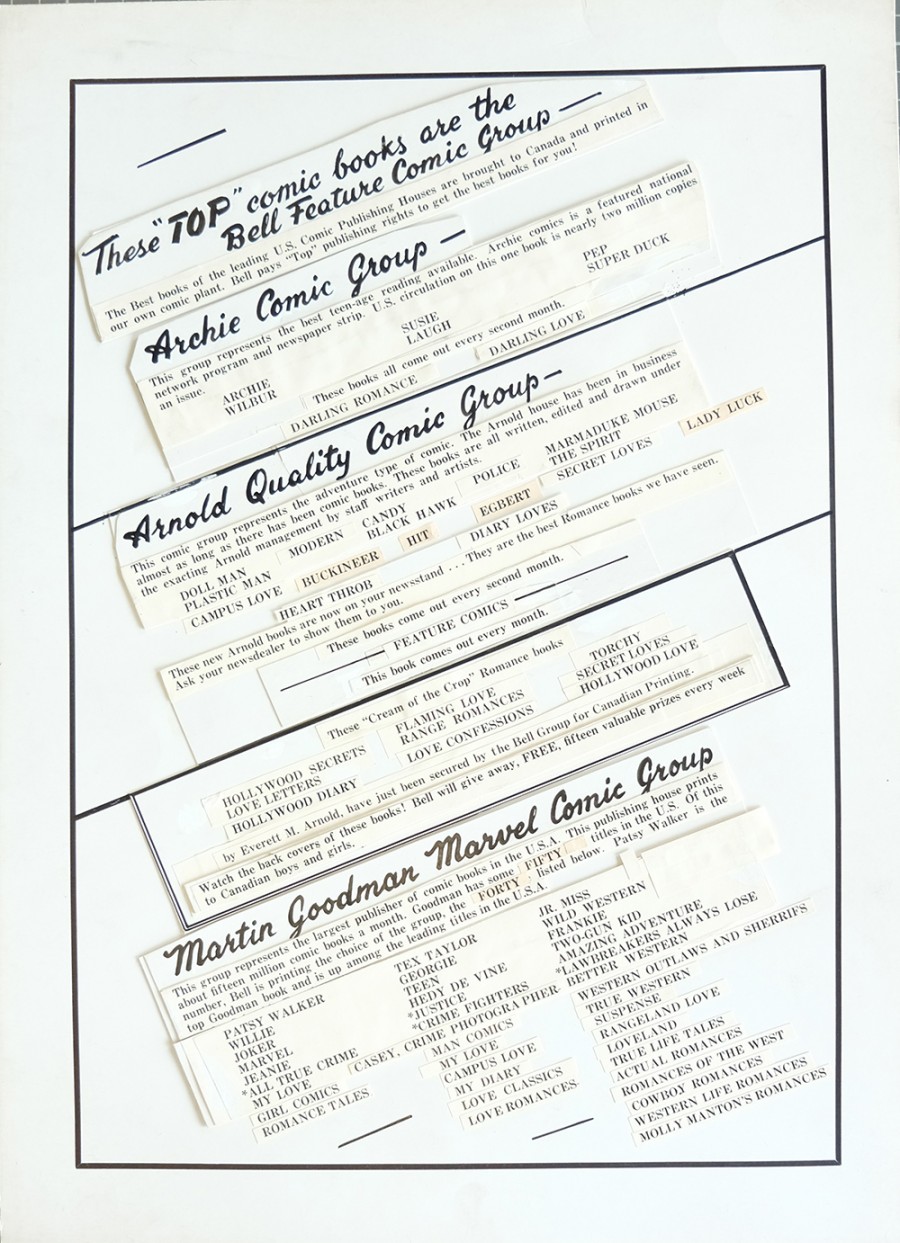 These "TOP" comic books are the
Bell Feature Comic Group —
The Best books of the leading U.S. Comic Publishing Houses are brought to Canada and printed in
our own comic plant. Bell pays "Top" publishing rights to get the best books for you!
Archie Comic Group —
This group represents the best teen-age reading available. Archie comics is a featured national
network program and newspaper strip. U.S. circulation on this one book is nearly two million copies
an issue.
ARCHIE SUSIE PEP
WILBUR LAUGH SUPER DUCK
These books all come out every second month.
DARLING ROMANCE DARLING LOVE
Arnold Quality Comic Group —
This comic group represents the adventure type of comic. The Arnold house has been in business
almost as long as there has been comic books. These books are all written, edited and drawn under
the exacting Arnold management by staff writers and artists.
DOLL MAN MODERN CANDY POLICE MARMADUKE MOUSE
PLASTIC MAN BLACK HAWK THE SPIRIT
CAMPUS LOVE BUCKINEER HIT EGBERT SECRET LOVES LADY LUCK
HEART THROB DIARY LOVES
These new Arnold books are now on your newsstand . . . They are the best Romance books we have seen.
Ask your newsdealer to show them to you.
These books come out every second month.
FEATURE COMICS
This book comes out every month.
These "Cream of the Crop" Romance books
HOLLYWOOD SECRETS FLAMING LOVE TORCHY
LOVE LETTERS RANGE ROMANCES SECRET LOVES
HOLLYWOOD DIARY LOVE CONFESSIONS HOLLYWOOD LOVE
by Everett M. Arnold, have just been secured by the Bell Group for Canadian Printing.
Watch the back covers of these books! Bell will give away, FREE, fifteen valuable prizes every week
to Canadian boys and girls.
Martin Goodman Marvel Comic Group
This group represents the largest publisher of comic books in the U.S.A. This publishing house prints
about fifteen million comic books a month. Goodman has some FIFTY titles in the U.S. Of this
number, Bell is printing the choice of the group, the FORTY listed below. Patsy Walker is the
top Goodman book and is up among the leading titles in the U.S.A.
PATSY WALKER
WILLIE
JOKER
MARVEL
JEANIE
*ALL TRUE CRIME
MY LOVE
GIRL COMICS
ROMANCE TALES
TEX TAYLOR
GEORGIE
TEEN
HEDY DE VINE
*JUSTICE
*CRIME FIGHTERS
CASEY, CRIME PHOTOGRAPHER
MAN COMICS
MY LOVE
CAMPUS LOVE
MY DIARY
LOVE CLASSICS
LOVE ROMANCES
JR. MISS
WILD WESTERN
FRANKIE
TWO-GUN KID
AMAZING ADVENTURE
*LAWBREAKERS ALWAYS LOSE
BETTER WESTERN
WESTERN OUTLAWS AND SHERRIFS
TRUE WESTERN
SUSPENSE
RANGELAND LOVE
LOVELAND
TRUE LIFE TALES
ACTUAL ROMANCES
ROMANCES OF THE WEST
COWBOY ROMANCES
WESTERN LIFE ROMANCES
MOLLY MANTON'S ROMANCES